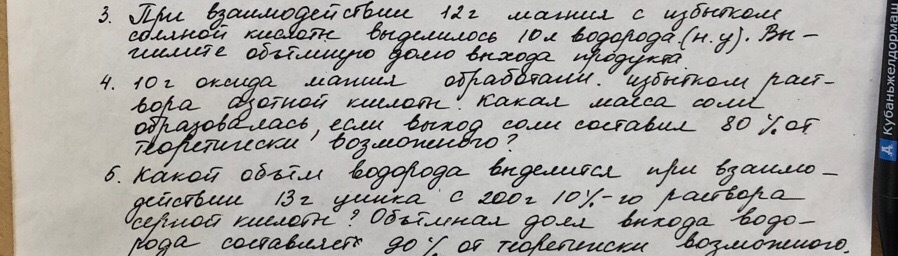 3. При взаимодействии 12 г магния с избытком
соляной кислоты выделилось 10 л водорода (н.у). Вы-
числите объёмную долю выхода продукта
4. 10 г оксида магния обработали избытком раст-
вора азотной кислоты. Какая масса соли
образовалась, если выход соли составил 80 % от
теоретически возможного?
5. Какой объём водорода выделится при взаимо-
действии 13 г цинка с 200 г 10%-го раствора
серной кислоты? Объёмная доля выхода водо-
рода составляет 90 % от теоретически возможного.
Кубаньжелдормаш